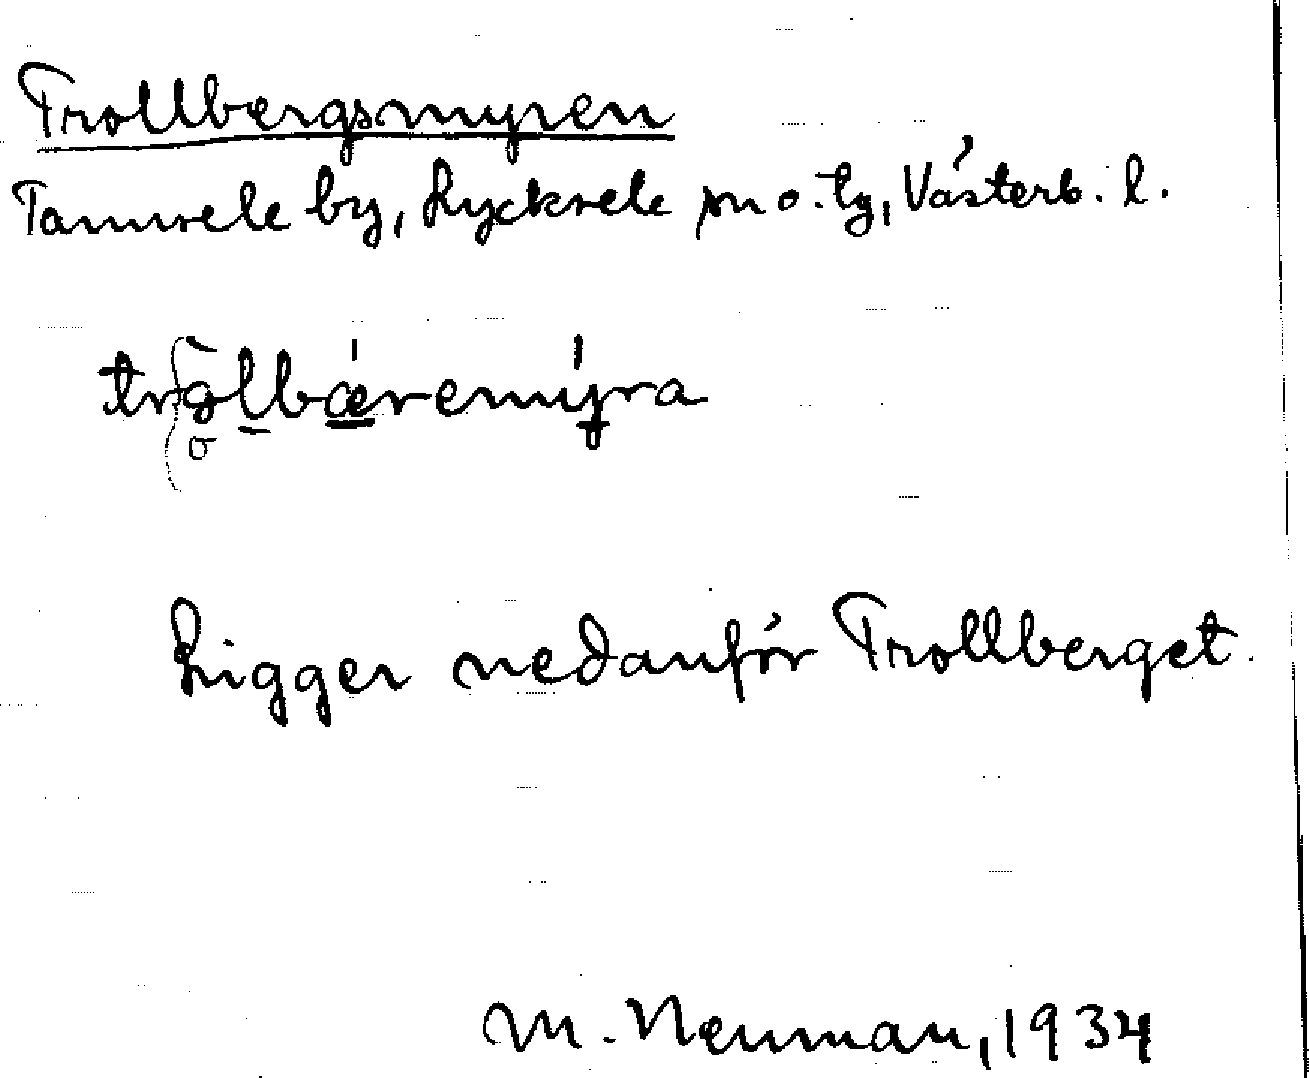 Trollbergsmyren
Tannsele by, Lycksele sn o. tg, Västerb. l.
Ligger nedanför Trollberget.
M. Neuman, 1934